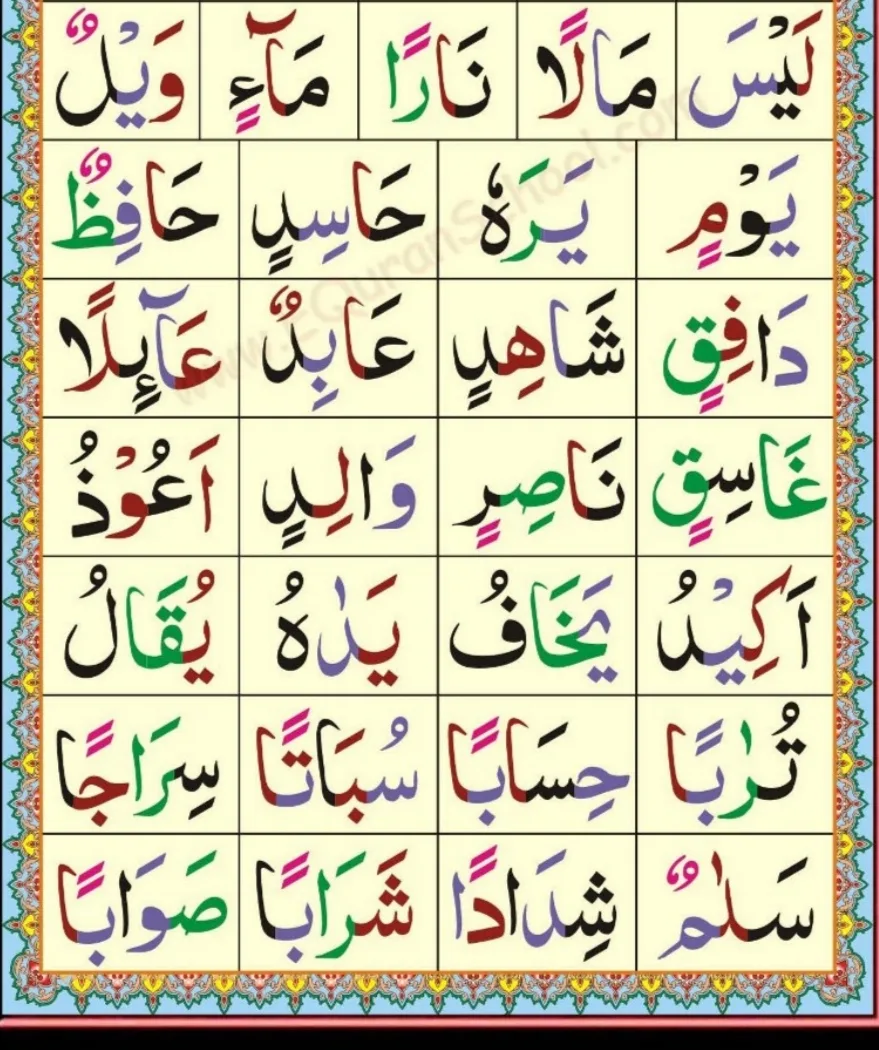 لَيْسَ مَالًا نَارًا مَآءٍ وَيْلٌ
يَوْمٍ يَرَهٗ حَاسِدٍ حَافِظٌ
دَافِقٍ شَاهِدٍ عَابِدٌ عَآئِلًا
غَاسِقٍ نَاصِرٍ وَالِدٍ اَعُوْذُ
اَكِيْدُ يَخَافُ يَدٰهُ يُقَالُ
تُرٰبًا حِسَابًا سُبَاتًا سِرَاجًا
سَلٰمٌ شِدَادًا شَرَابًا صَوَابًا
www.eQuranSchool.com